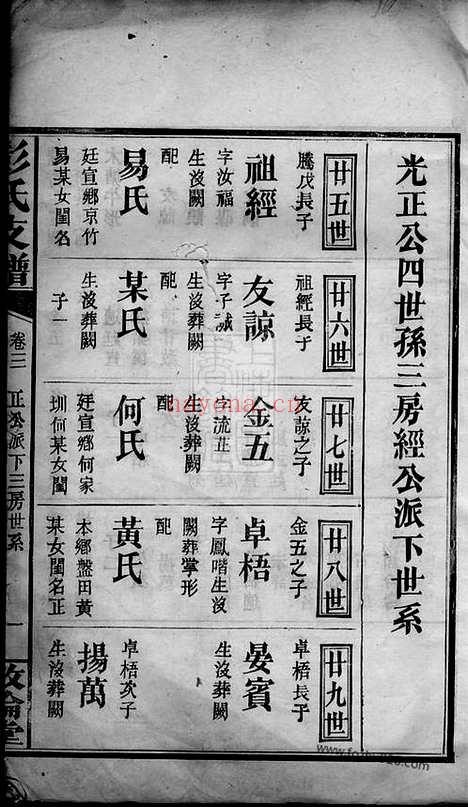 光正公四世孫三房經公派下世系
廿五世
騰戊長子
祖經
字汝福
生沒闕
配
易氏
廷宣鄉京竹
易某女閨名
廿六世
祖經長子
友諒
字子誠
生沒葬闕
配
某氏
生沒葬闕
子一
廿七世
友諒之子
金五
字流芷
生沒葬闕
配
何氏
廷宣鄉何家
圳何某女閨
廿八世
金五之子
卓梧
字鳳喈生沒
闕葬掌形
配
黃氏
本鄉盤田黃
某女閨名正
廿九世
卓梧長子
晏賓
生沒葬闕
卓梧次子
揚萬
生沒葬闕
彭氏支譜
卷三
正公派下三房世系
一
敘倫堂
nayona.cn